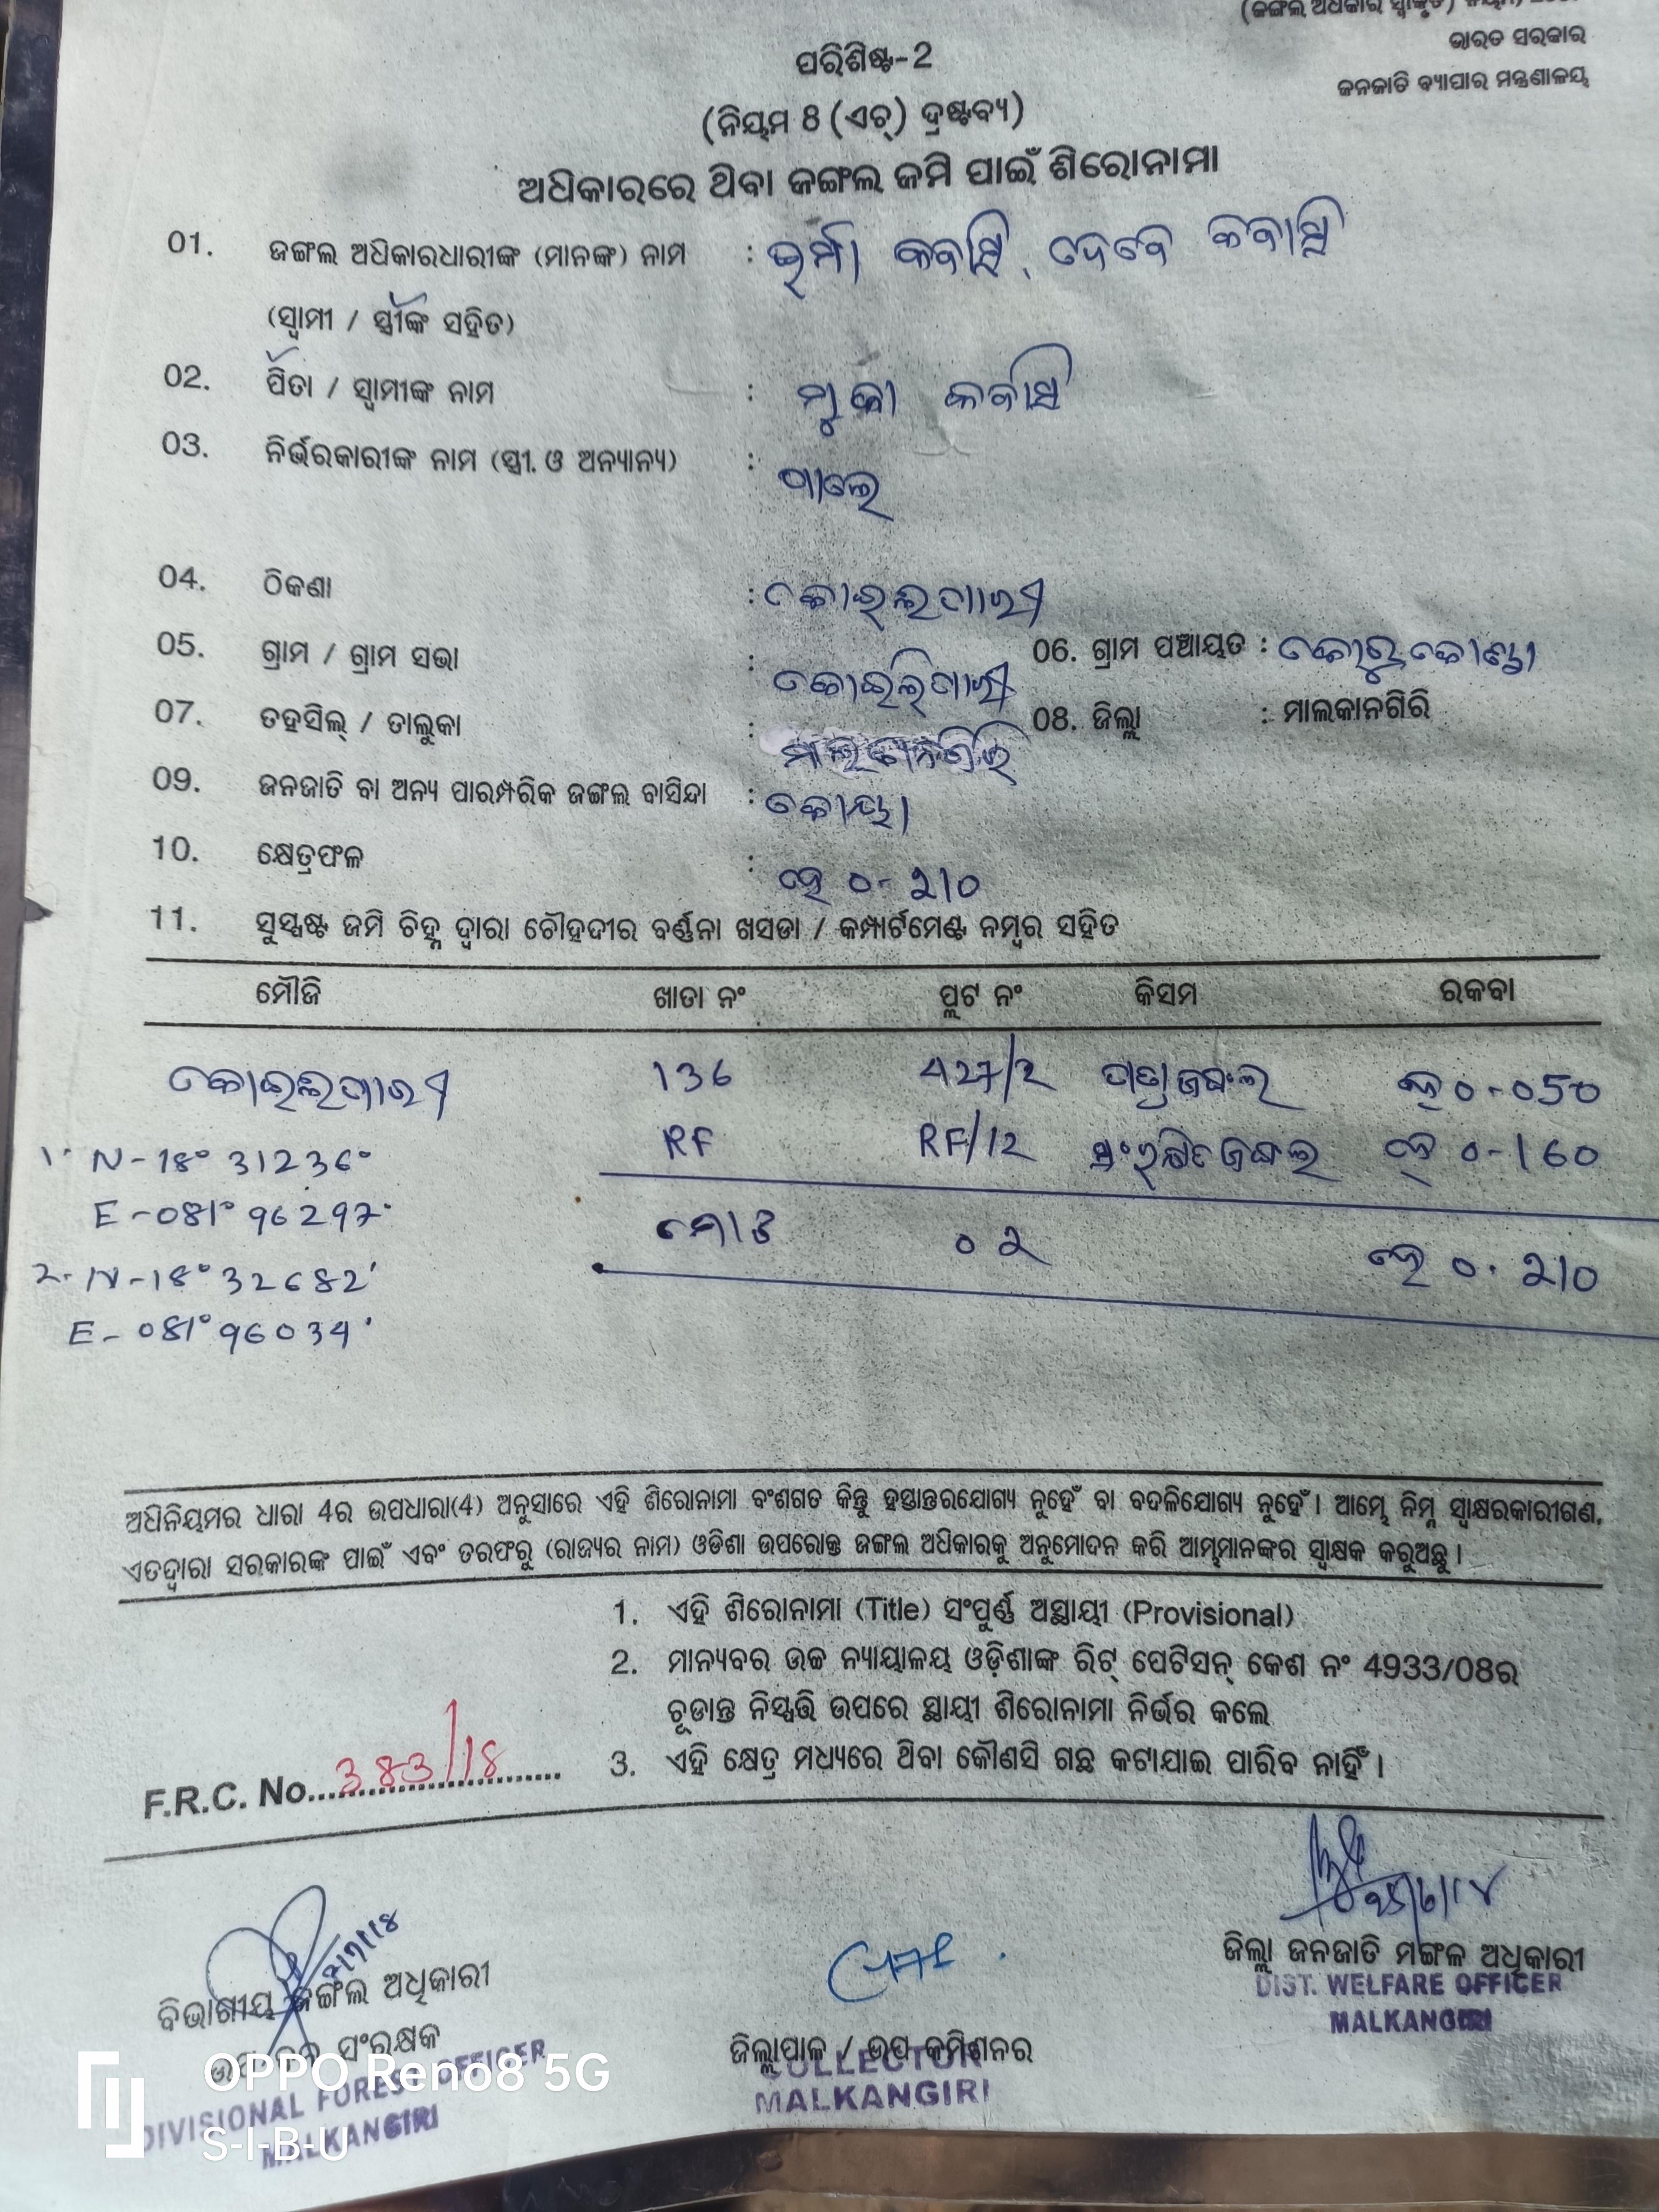 ଭାରତ ସରକାର
ଜନଜାତି ବ୍ୟାପାର ମନ୍ତ୍ରଣାଳୟ
ପରିଶିଷ୍ଟ-2
(ନିୟମ 8 (ଏଚ୍) ଦ୍ରଷ୍ଟବ୍ୟ)
ଅଧିକାରରେ ଥିବା ଜଙ୍ଗଲ ଜମି ପାଇଁ ଶିରୋନାମା
01. ଜଙ୍ଗଲ ଅଧିକାରଧାରୀଙ୍କ (ମାନଙ୍କ) ନାମ : କବାସି, ଦେବେ କବାସି
(ସ୍ୱାମୀ / ସ୍ତ୍ରୀଙ୍କ ସହିତ)
02. ପିତା / ସ୍ୱାମୀଙ୍କ ନାମ : ମୁକା କବାସି
03. ନିର୍ଭରକାରୀଙ୍କ ନାମ (ସ୍ତ୍ରୀ. ଓ ଅନ୍ୟାନ୍ୟ) :
04. ଠିକଣା :
05. ଗ୍ରାମ / ଗ୍ରାମ ସଭା : 06. ଗ୍ରାମ ପଞ୍ଚାୟତ : କୋରୁକୋଣ୍ଡା
07. ତହସିଲ୍ / ତାଲୁକା : ମାଲକାନଗିରି 08. ଜିଲ୍ଲା : ମାଲକାନଗିରି
09. ଜନଜାତି ବା ଅନ୍ୟ ପାରମ୍ପରିକ ଜଙ୍ଗଲ ବାସିନ୍ଦା : କୋୟା
10. କ୍ଷେତ୍ରଫଳ : ହେ ୦-୨10
11. ସୁସ୍ପଷ୍ଟ ଜମି ଚିହ୍ନ ଦ୍ୱାରା ଚୌହଦୀର ବର୍ଣ୍ଣନା ଖସଡା / କମ୍ପାର୍ଟମେଣ୍ଟ ନମ୍ବର ସହିତ
ମୌଜି ଖାତା ନଂ ପ୍ଲଟ ନଂ କିସମ ରକବା
136 427/2 ଜଙ୍ଗଲ 0-050
1. N-18° 31236°
RF RF/12 ସଂରକ୍ଷିତ ଜଙ୍ଗଲ ହେ 0-160
E-081° 96297'
ମୋଟ ୦୨ ହେ 0.210
2. N-18° 32682'
E-081° 96034'
ଅଧିନିୟମର ଧାରା 4ର ଉପଧାରା(4) ଅନୁସାରେ ଏହି ଶିରୋନାମା ବଂଶଗତ କିନ୍ତୁ ହସ୍ତାନ୍ତରଯୋଗ୍ୟ ନୁହେଁ ବା ବଦଳିଯୋଗ୍ୟ ନୁହେଁ। ଆମ୍ଭେ ନିମ୍ନ ସ୍ୱାକ୍ଷରକାରୀଗଣ,
ଏତଦ୍ୱାରା ସରକାରଙ୍କ ପାଇଁ ଏବଂ ତରଫରୁ (ରାଜ୍ୟର ନାମ) ଓଡିଶା ଉପରୋକ୍ତ ଜଙ୍ଗଲ ଅଧିକାରକୁ ଅନୁମୋଦନ କରି ଆମ୍ଭମାନଙ୍କର ସ୍ୱାକ୍ଷକ କରୁଅଛୁ।
1. ଏହି ଶିରୋନାମା (Title) ସଂପୁର୍ଣ୍ଣ ଅସ୍ଥାୟୀ (Provisional)
2. ମାନ୍ୟବର ଉଚ୍ଚ ନ୍ୟାୟାଳୟ ଓଡ଼ିଶାଙ୍କ ରିଟ୍ ପେଟିସନ୍ କେଶ ନଂ 4933/08ର
ଚୂଡାନ୍ତ ନିସ୍ପତ୍ତି ଉପରେ ସ୍ଥାୟୀ ଶିରୋନାମା ନିର୍ଭର କଲେ
3. ଏହି କ୍ଷେତ୍ର ମଧ୍ୟରେ ଥିବା କୌଣସି ଗଛ କଟାଯାଇ ପାରିବ ନାହିଁ।
F.R.C. No....383/18....
ଜିଲ୍ଲା ଜନଜାତି ମଙ୍ଗଳ ଅଧିକାରୀ
DIST. WELFARE OFFICER
MALKANGIRI
ବିଭାଗୀୟ ଜଙ୍ଗଲ ଅଧିକାରୀ
ଉପ ବନ ସଂରକ୍ଷକ
DIVISIONAL FOREST OFFICER
MALKANGIRI
ଜିଲ୍ଲାପାଳ / ଉପ କମିଶନର
COLLECTOR
MALKANGIRI
OPPO Reno8 5G
S-I-B-U